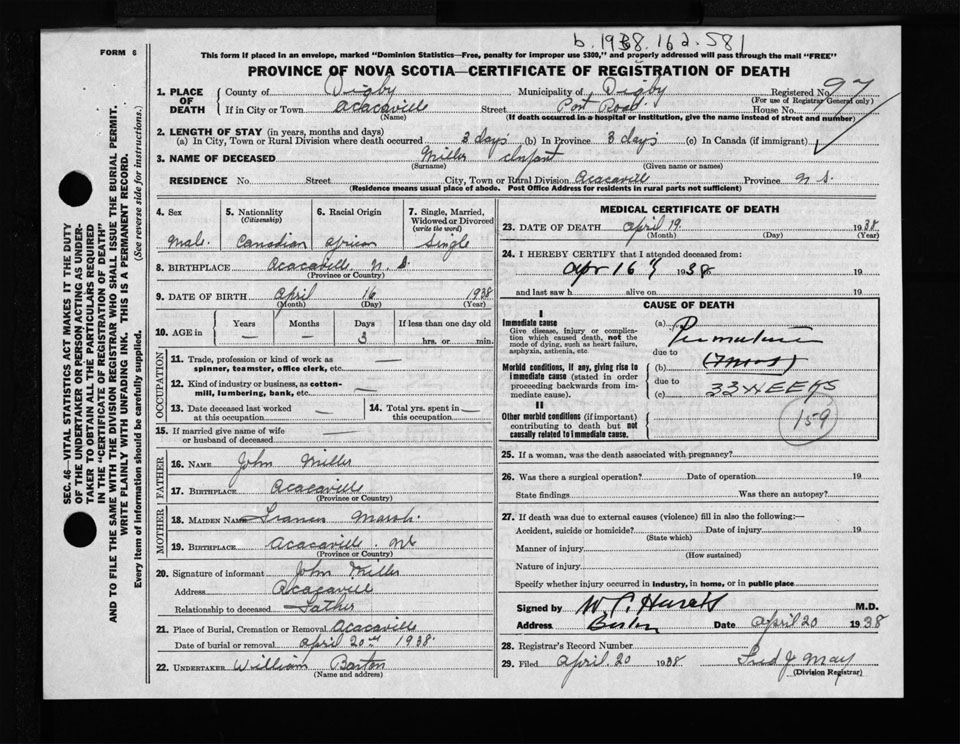 b. 1938. 162. 581
FORM 6
This form if placed in an envelope, marked "Dominion Statistics—Free, penalty for improper use $300," and properly addressed will pass through the mail "FREE"
PROVINCE OF NOVA SCOTIA—CERTIFICATE OF REGISTRATION OF DEATH
SEC. 46—VITAL STATISTICS ACT MAKES IT THE DUTY
OF THE UNDERTAKER OR PERSON ACTING AS UNDER-
TAKER TO OBTAIN ALL THE PARTICULARS REQUIRED
IN THE "CERTIFICATE OF REGISTRATION OF DEATH"
AND TO FILE THE SAME WITH THE DIVISION REGISTRAR WHO SHALL ISSUE THE BURIAL PERMIT.
WRITE PLAINLY WITH UNFADING INK. THIS IS A PERMANENT RECORD.
Every item of information should be carefully supplied. (See reverse side for instructions.)
1. PLACE OF DEATH County of Digby Municipality of Digby Registered No. 97
(For use of Registrar General only)
If in City or Town Acacaville Street Post Road House No.
(Name) (If death occurred in a hospital or institution, give the name instead of street and number)
2. LENGTH OF STAY (in years, months and days)
(a) In City, Town or Rural Division where death occurred 3 days (b) In Province 3 days (c) In Canada (if immigrant)
3. NAME OF DECEASED Miller Infant
(Surname) (Given name or names)
RESIDENCE No. Street City, Town or Rural Division Acacaville Province N S.
(Residence means usual place of abode. Post Office Address for residents in rural parts not sufficient)
4. Sex 5. Nationality 6. Racial Origin 7. Single, Married,
(Citizenship) Widowed or Divorced
(write the word)
Male. Canadian African Single
8. BIRTHPLACE Acacaville N. S.
(Province or Country)
9. DATE OF BIRTH April 16 1938
(Month) (Day) (Year)
10. AGE in Years Months Days If less than one day old
— — 3 hrs. or min.
OCCUPATION
11. Trade, profession or kind of work as —
spinner, teamster, office clerk, etc.
12. Kind of industry or business, as cotton- —
mill, lumbering, bank, etc.
13. Date deceased last worked — 14. Total yrs. spent in —
at this occupation this occupation
15. If married give name of wife
or husband of deceased —
FATHER
16. NAME John Miller
17. BIRTHPLACE Acacaville
(Province or Country)
MOTHER
18. MAIDEN NAME Frances Marsh
19. BIRTHPLACE Acacaville NS
(Province or Country)
20. Signature of informant John Miller
Address Acacaville
Relationship to deceased Father
21. Place of Burial, Cremation or Removal Acacaville
Date of burial or removal April 20 1938
22. UNDERTAKER William Barton
(Name and address)
MEDICAL CERTIFICATE OF DEATH
23. DATE OF DEATH April 19. 1938
(Month) (Day) (Year)
24. I HEREBY CERTIFY that I attended deceased from:
Apr 16 1938 19
and last saw h alive on 19
CAUSE OF DEATH
I
Immediate cause (a)
Give disease, injury or complica-
tion which caused death, not the
mode of dying, such as heart failure,
asphyxia, asthenia, etc. due to
Morbid conditions, if any, giving rise to (b)
immediate cause (stated in order
proceeding backwards from im- due to
mediate cause). (c) 33 WEEKS
II
Other morbid conditions (if important)
contributing to death but not
causally related to immediate cause.
159
25. If a woman, was the death associated with pregnancy?
26. Was there a surgical operation? Date of operation 19
State findings Was there an autopsy?
27. If death was due to external causes (violence) fill in also the following:—
Accident, suicide or homicide? Date of injury 19
(State which)
Manner of injury
(How sustained)
Nature of injury
Specify whether injury occurred in industry, in home, or in public place
Signed by M.D.
Address Date April 20 1938
28. Registrar's Record Number
29. Filed April 20 1938 Fred J May
(Division Registrar)